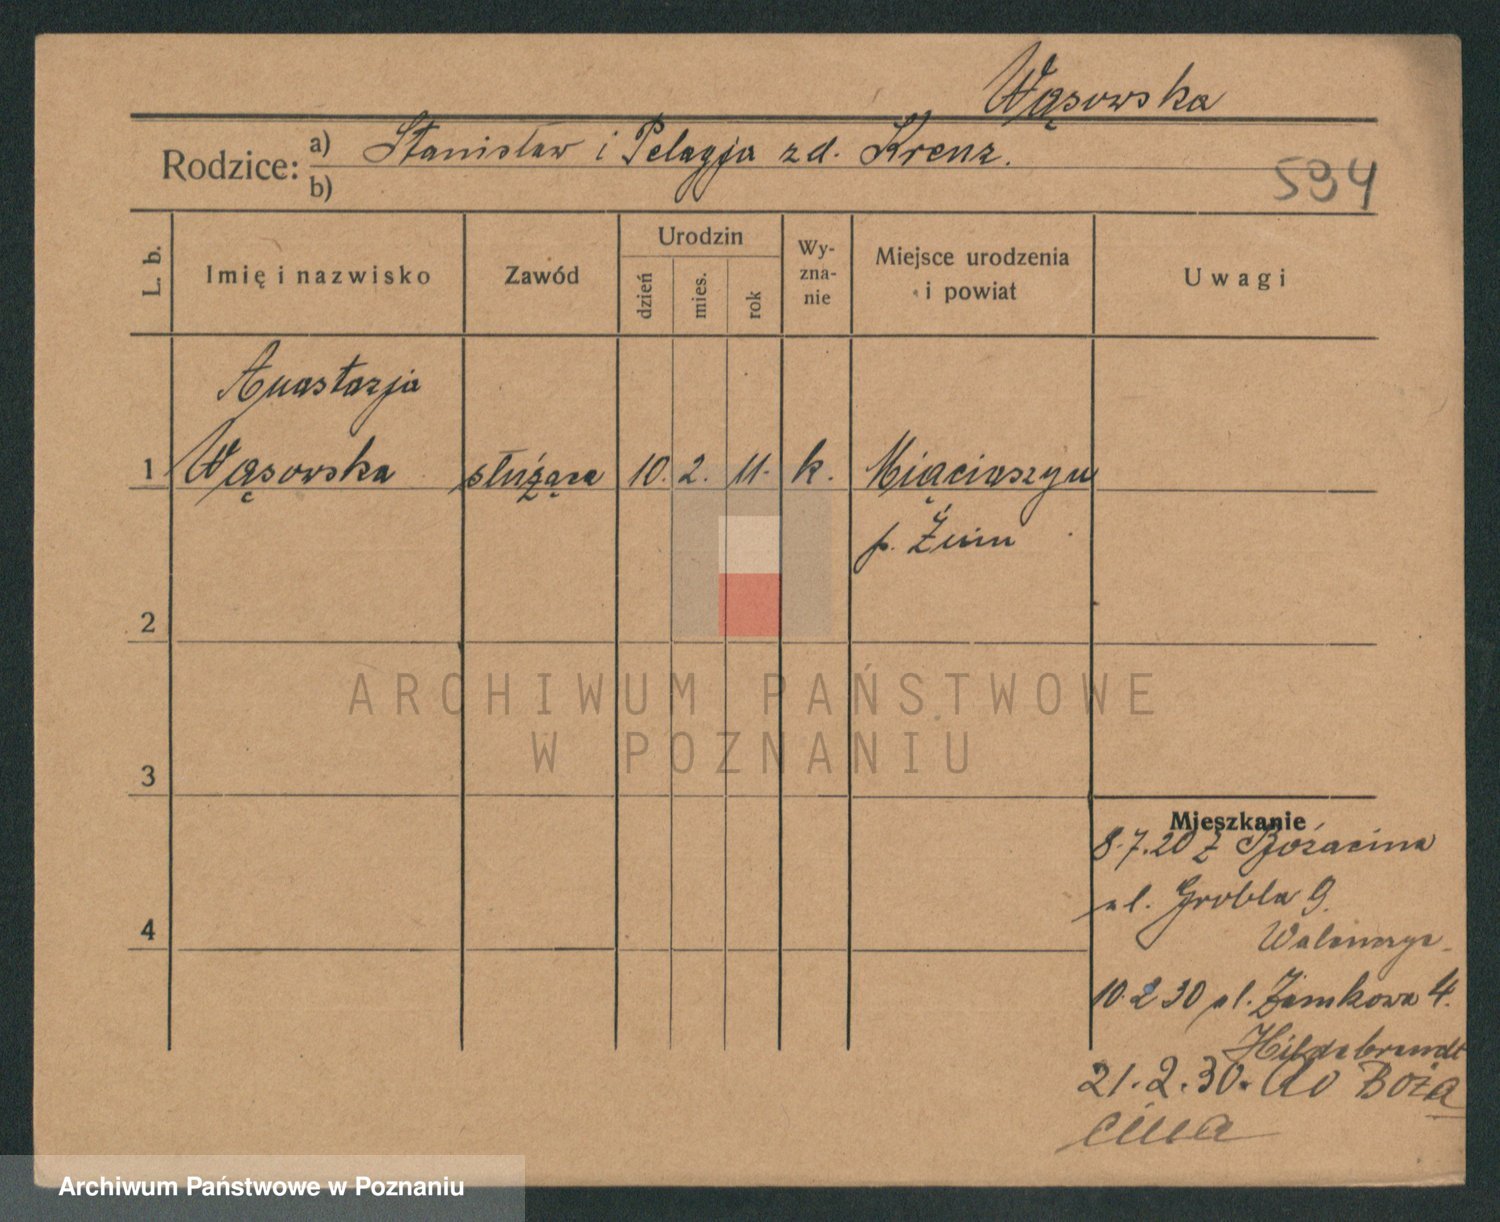 Wąsowska
Rodzice: a) Stanisław i Pelagja zd. Krenz.
b)
594
L. b.
Imię i nazwisko
Zawód
Urodzin
dzień
mies.
rok
Wy-
zna-
nie
Miejsce urodzenia
i powiat
Uwagi
Anastazja
1 Wąsowska służąca 10. 2. 11. k.
p. Żnin
2
3
4
Mieszkanie
8.7.20 z Bożacina
ul. Grobla 9.
10.2 30 ul. Zamkowa 4.
Hildebrandt
21.2.30. do Boża
cina
ARCHIWUM PAŃSTWOWE
W POZNANIU
Archiwum Państwowe w Poznaniu